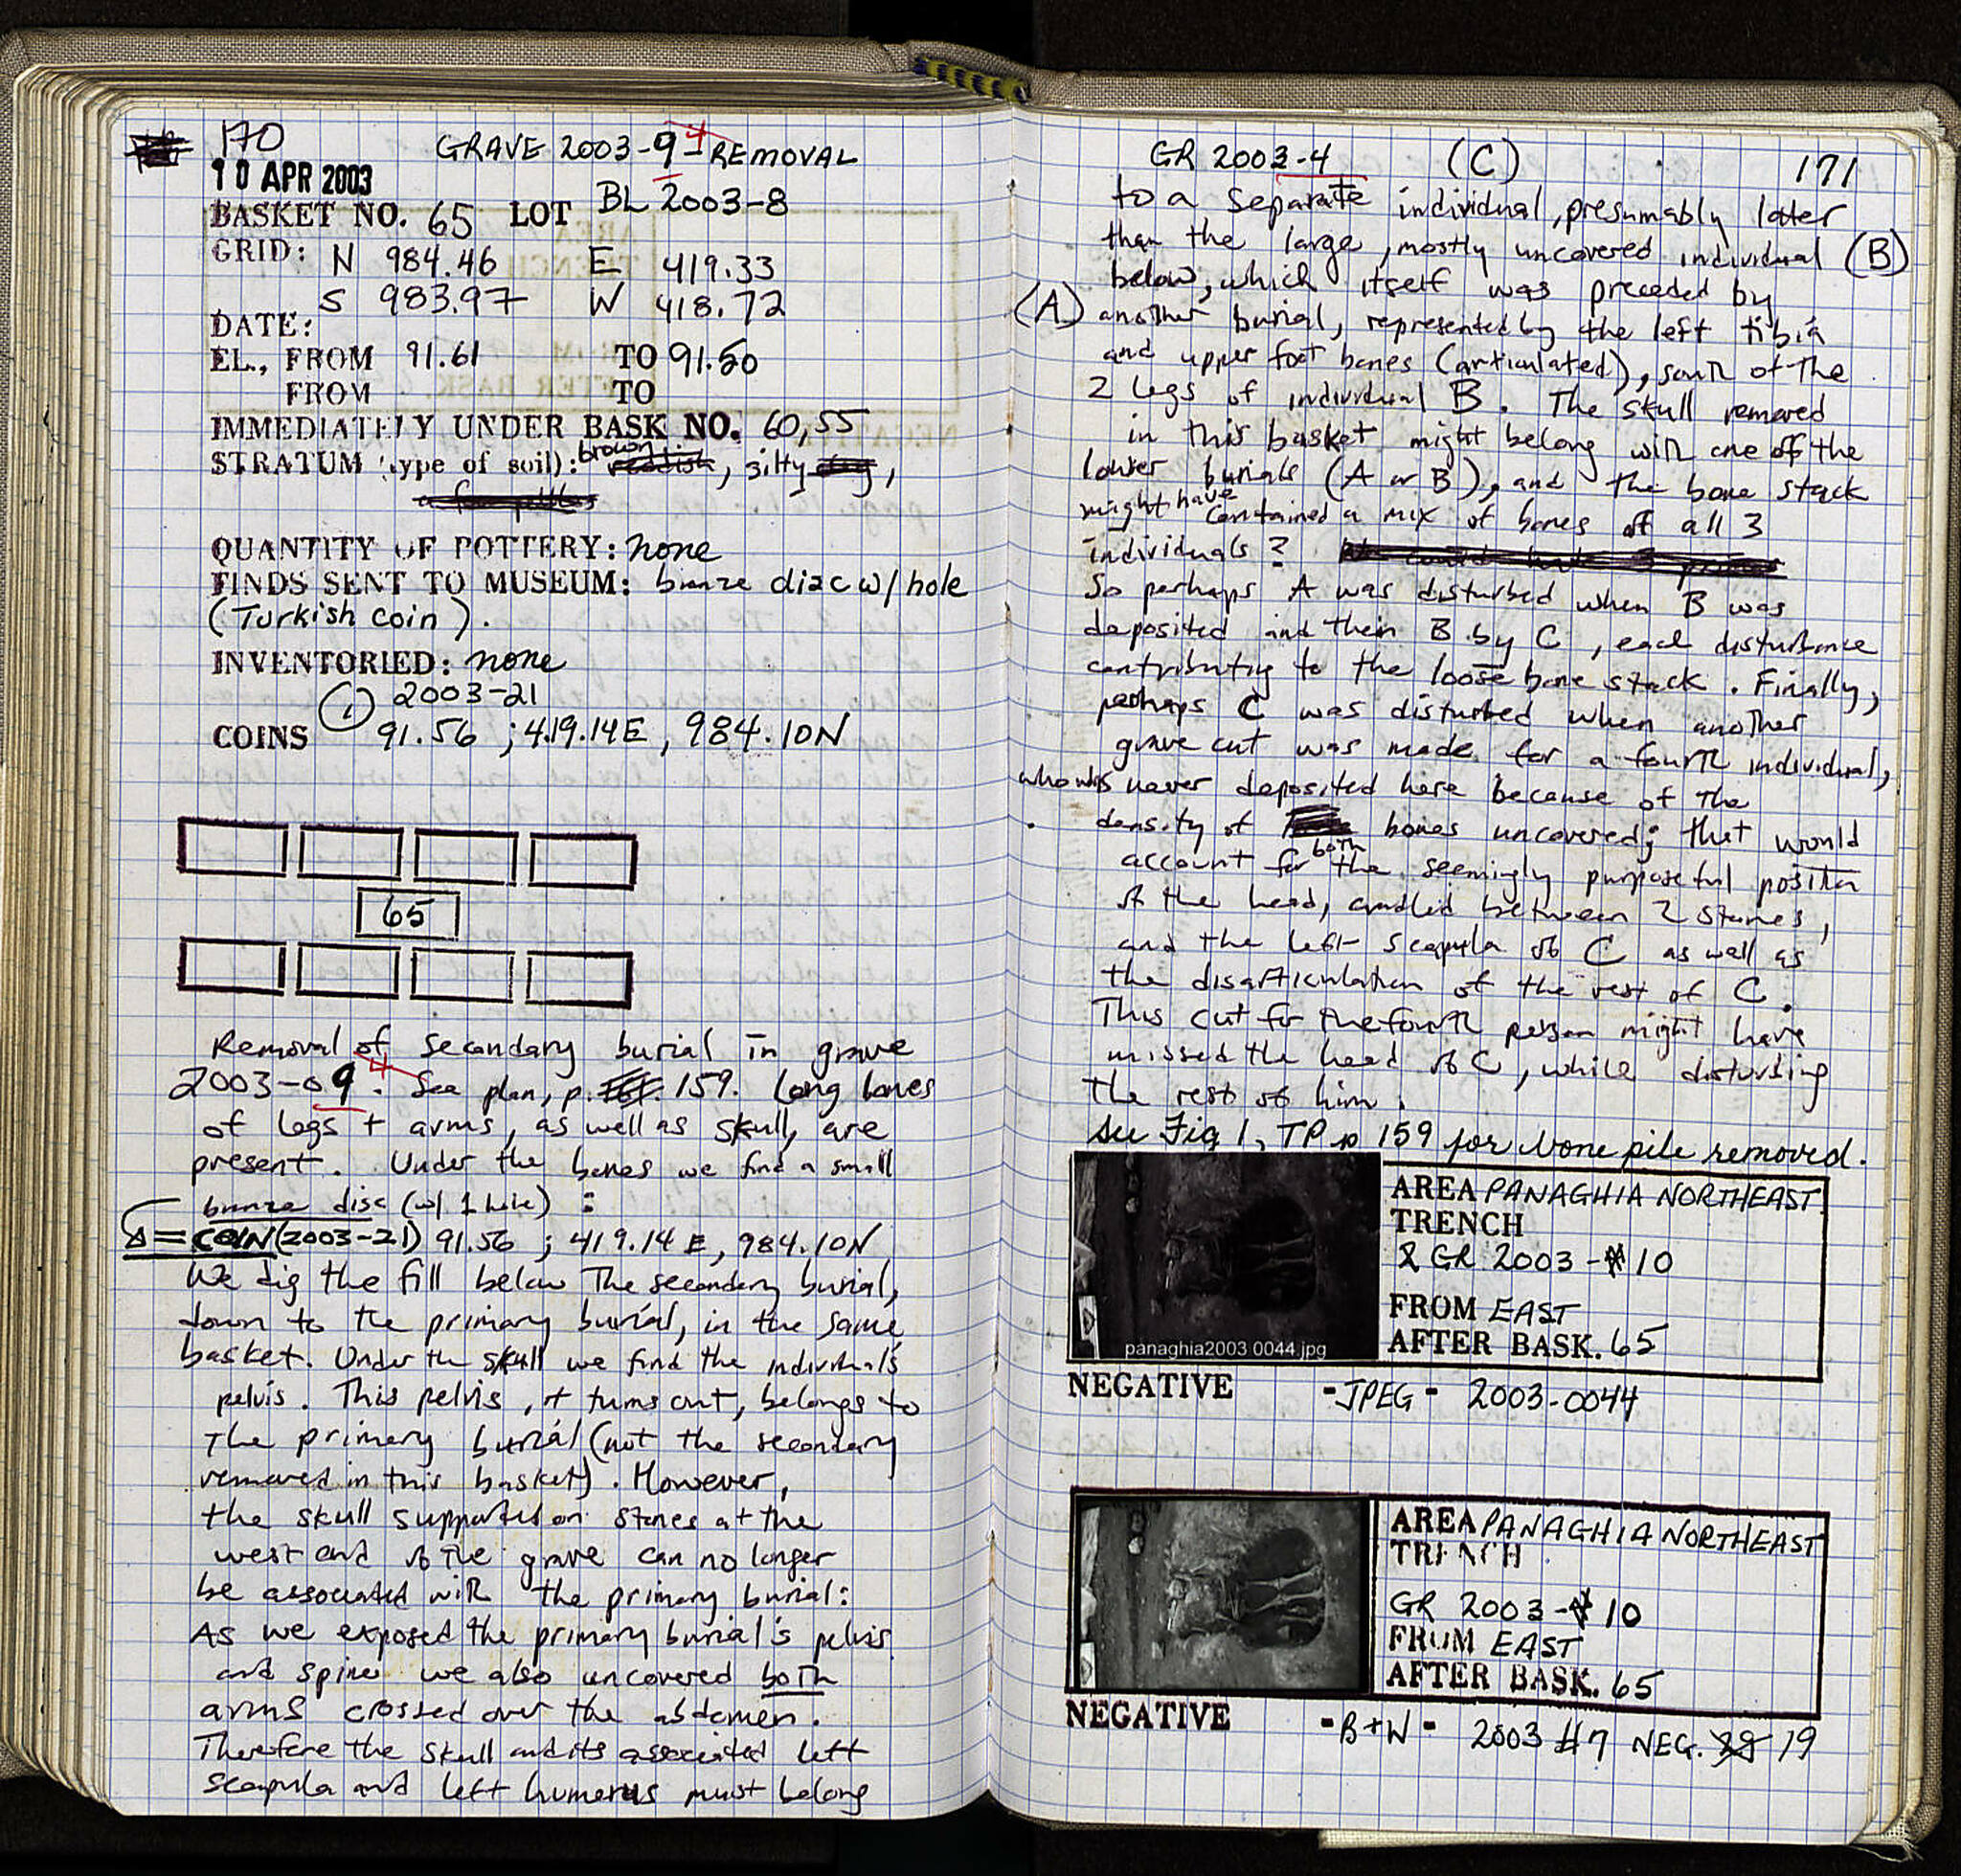 170
GRAVE 2003-9 4 - REMOVAL
10 APR 2003
BASKET NO. 65 LOT BL 2003-8
GRID: N 984.46 E 419.33
S 983.97 W 418.72
DATE:
EL., FROM 91.61 TO 91.50
FROM TO
IMMEDIATELY UNDER BASK NO. 60,55
STRATUM (type of soil): brown, silty,
QUANTITY OF POTTERY: none
FINDS SENT TO MUSEUM: bronze disc w/ hole
(Turkish coin).
INVENTORIED: none
① 2003-21
COINS 91.56 ; 419.14E, 984.10N
65
Removal of secondary burial in grave
2003-09 4. See plan, p. 159. Long bones
of legs + arms, as well as skull, are
present. Under the bones we find a small
bronze disc (w/ 1 hole) :
= COIN (2003-21) 91.56 ; 419.14 E, 984.10N
We dig the fill below the secondary burial,
down to the primary burial, in the same
basket. Under the skull we find the individual's
pelvis. This pelvis, it turns out, belongs to
the primary burial (not the secondary
removed in this basket). However,
the skull supported on stones at the
west end of the grave can no longer
be associated with the primary burial:
As we exposed the primary burial's pelvis
and spine we also uncovered both
arms crossed over the abdomen.
Therefore the skull and its associated left
scapula and left humerus must belong
GR 2003-4 (C) 171
to a separate individual, presumably later
than the large, mostly uncovered individual (B)
below, which itself was preceded by
(A) another burial, represented by the left tibia
and upper foot bones (articulated), south of the
2 legs of individual B. The skull removed
in this basket might belong with one of the
lower burials (A or B), and the bone stack
might have contained a mix of bones of all 3
individuals?
So perhaps A was disturbed when B was
deposited and then B by C, each disturbance
contributing to the loose bone stack. Finally,
perhaps C was disturbed when another
grave cut was made for a fourth individual,
who was never deposited here because of the
density of bones uncovered; that would
account for both the seemingly purposeful position
of the head, cradled between 2 stones,
and the left scapula of C as well as
the disarticulation of the rest of C.
This cut for the fourth person might have
missed the head of C, while disturbing
the rest of him.
See Fig 1, TP p 159 for bone pile removed.
panaghia2003 0044.jpg
AREA PANAGHIA NORTHEAST
TRENCH
& GR 2003-10
FROM EAST
AFTER BASK. 65
NEGATIVE -JPEG- 2003-0044
AREA PANAGHIA NORTHEAST
TRENCH
GR 2003-10
FROM EAST
AFTER BASK. 65
NEGATIVE -B+W- 2003 #7 NEG. 19